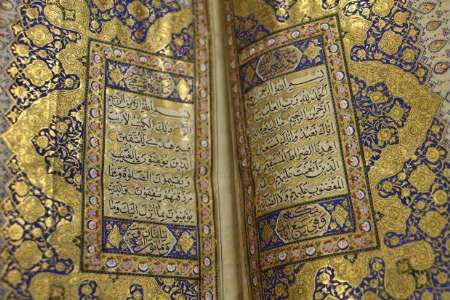 بسم الله الرحمن الرحيم
الحمد لله رب العالمين
الرحمن الرحيم مالك يوم الدين
اياك نعبد واياك نستعين
اهدنا الصراط المستقيم
صراط الذين انعمت عليهم غير
المغضوب عليهم ولا الضالين
بسم الله الرحمن الرحيم
الم ذلك الكتاب لا ريب
فيه هدى للمتقين
الذين يؤمنون بالغيب
ويقيمون الصلوة ومما
رزقناهم ينفقون والذين
يؤمنون بما انزل اليك